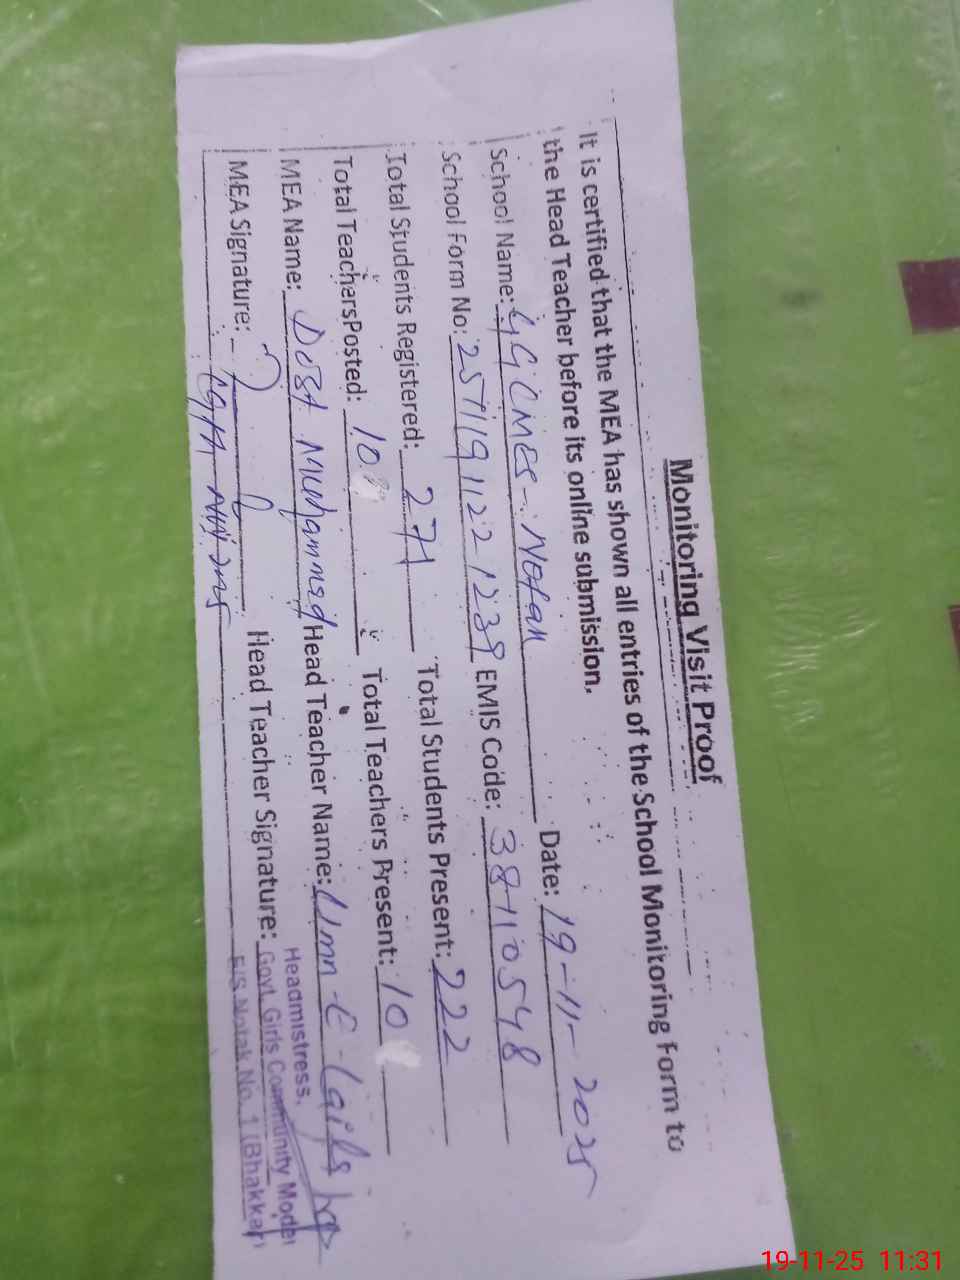 Monitoring Visit Proof
It is certified that the MEA has shown all entries of the School Monitoring Form to
the Head Teacher before its online submission.
School Name: GGCMES-Notak Date: 19-11-2025
School Form No: 251119112212 39 EMIS Code: 38110548
Total Students Registered: 271 Total Students Present: 222
Total TeachersPosted: 10 Total Teachers Present: 10
MEA Name: Dost Muhammed Head Teacher Name: Umm-E-
MEA Signature: Head Teacher Signature:
Headmistress,
Govt. Girls Community Model
E/S Notak No. 1 (Bhakkar)
19-11-25 11:31